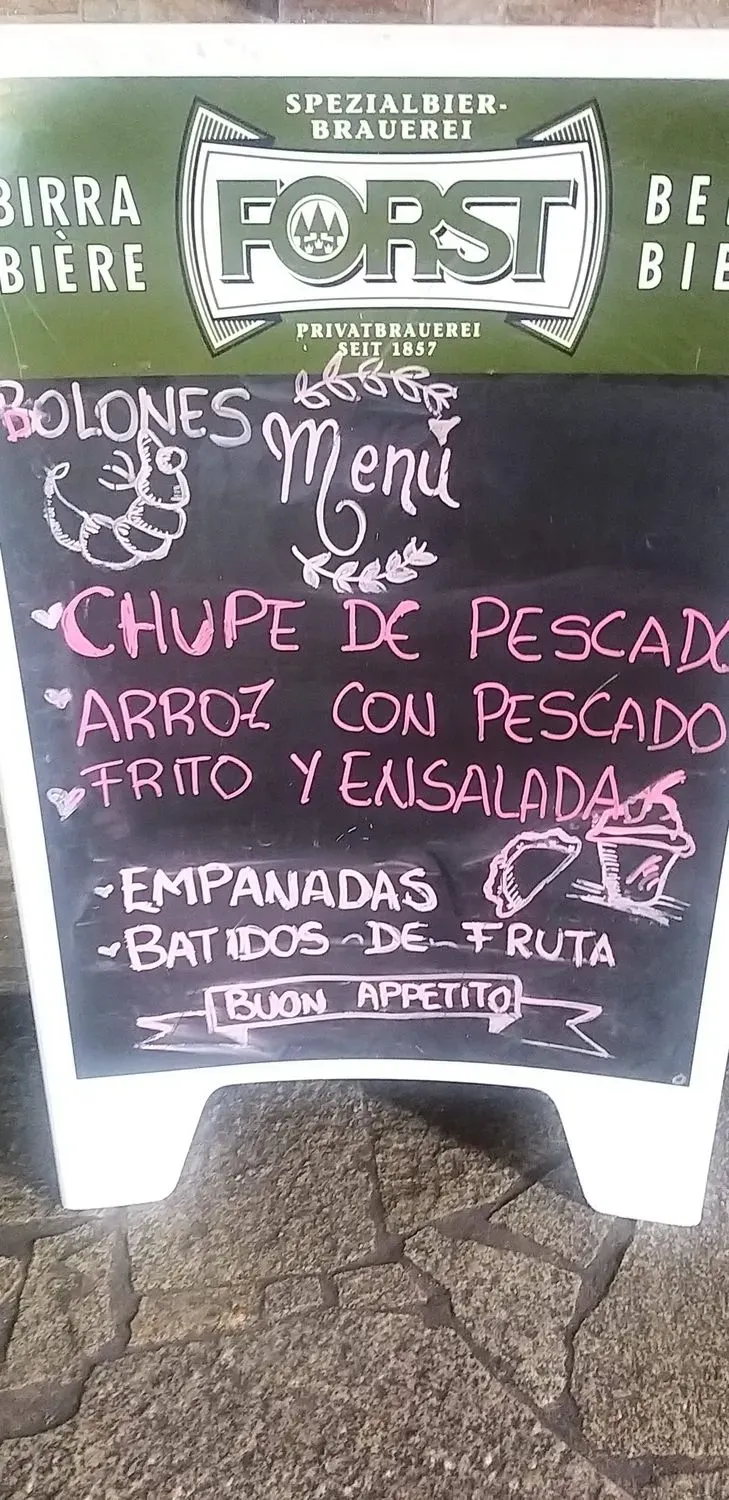 SPEZIALBIER-
BRAUEREI
BIRRA
BIÈRE
FORST
BE
BIE
PRIVATBRAUEREI
SEIT 1857
BOLONES
Menú
CHUPE DE PESCADO
ARROZ CON PESCADO
FRITO Y ENSALADA
EMPANADAS
BATIDOS DE FRUTA
BUON APPETITO